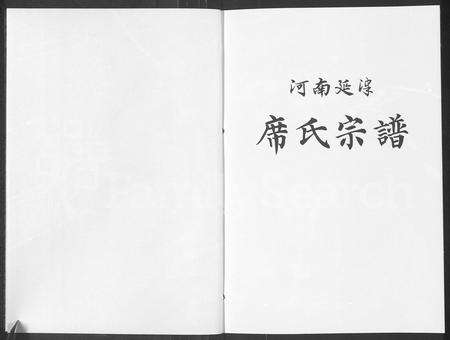 河南延津
席氏宗譜
FamilySearch